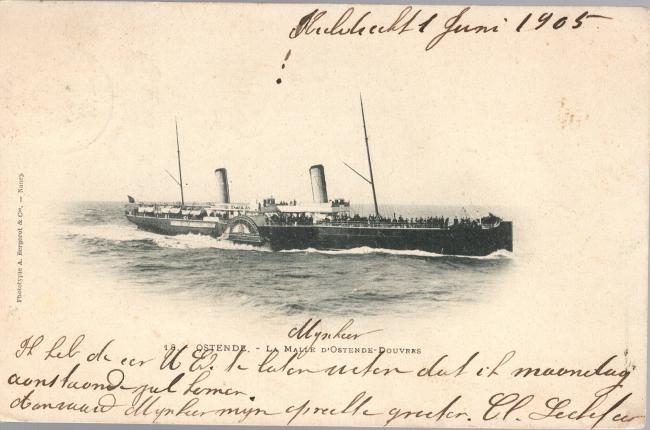 1 Juni 1905
Phototypie A. Bergeret & Cie. — Nancy.
Mynheer
18. OSTENDE. - LA MALLE D'OSTENDE-DOUVRES
Ik heb de eer U E. te laten weten dat ik maandag
aanstaande zal komen.
Aanvaard Mynheer myn oprechte groeten. Ch.